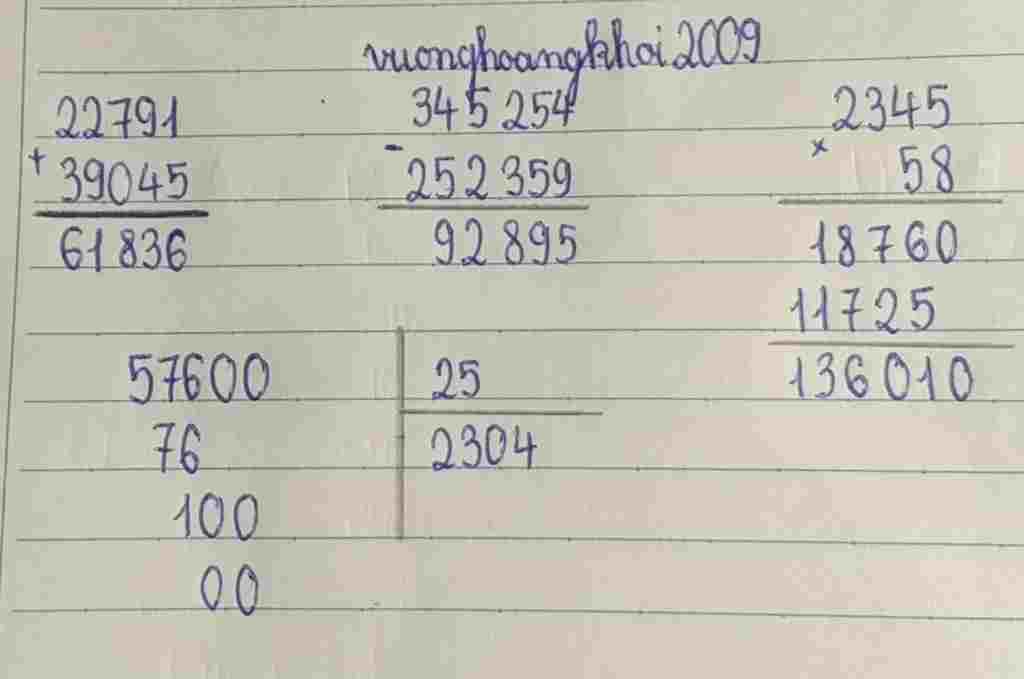 vuonghoangkhoi2009
22791
+
39045
61836
345254
-
252359
92895
2345
x
58
18760
11725
136010
57600 25
76 2304
100
00